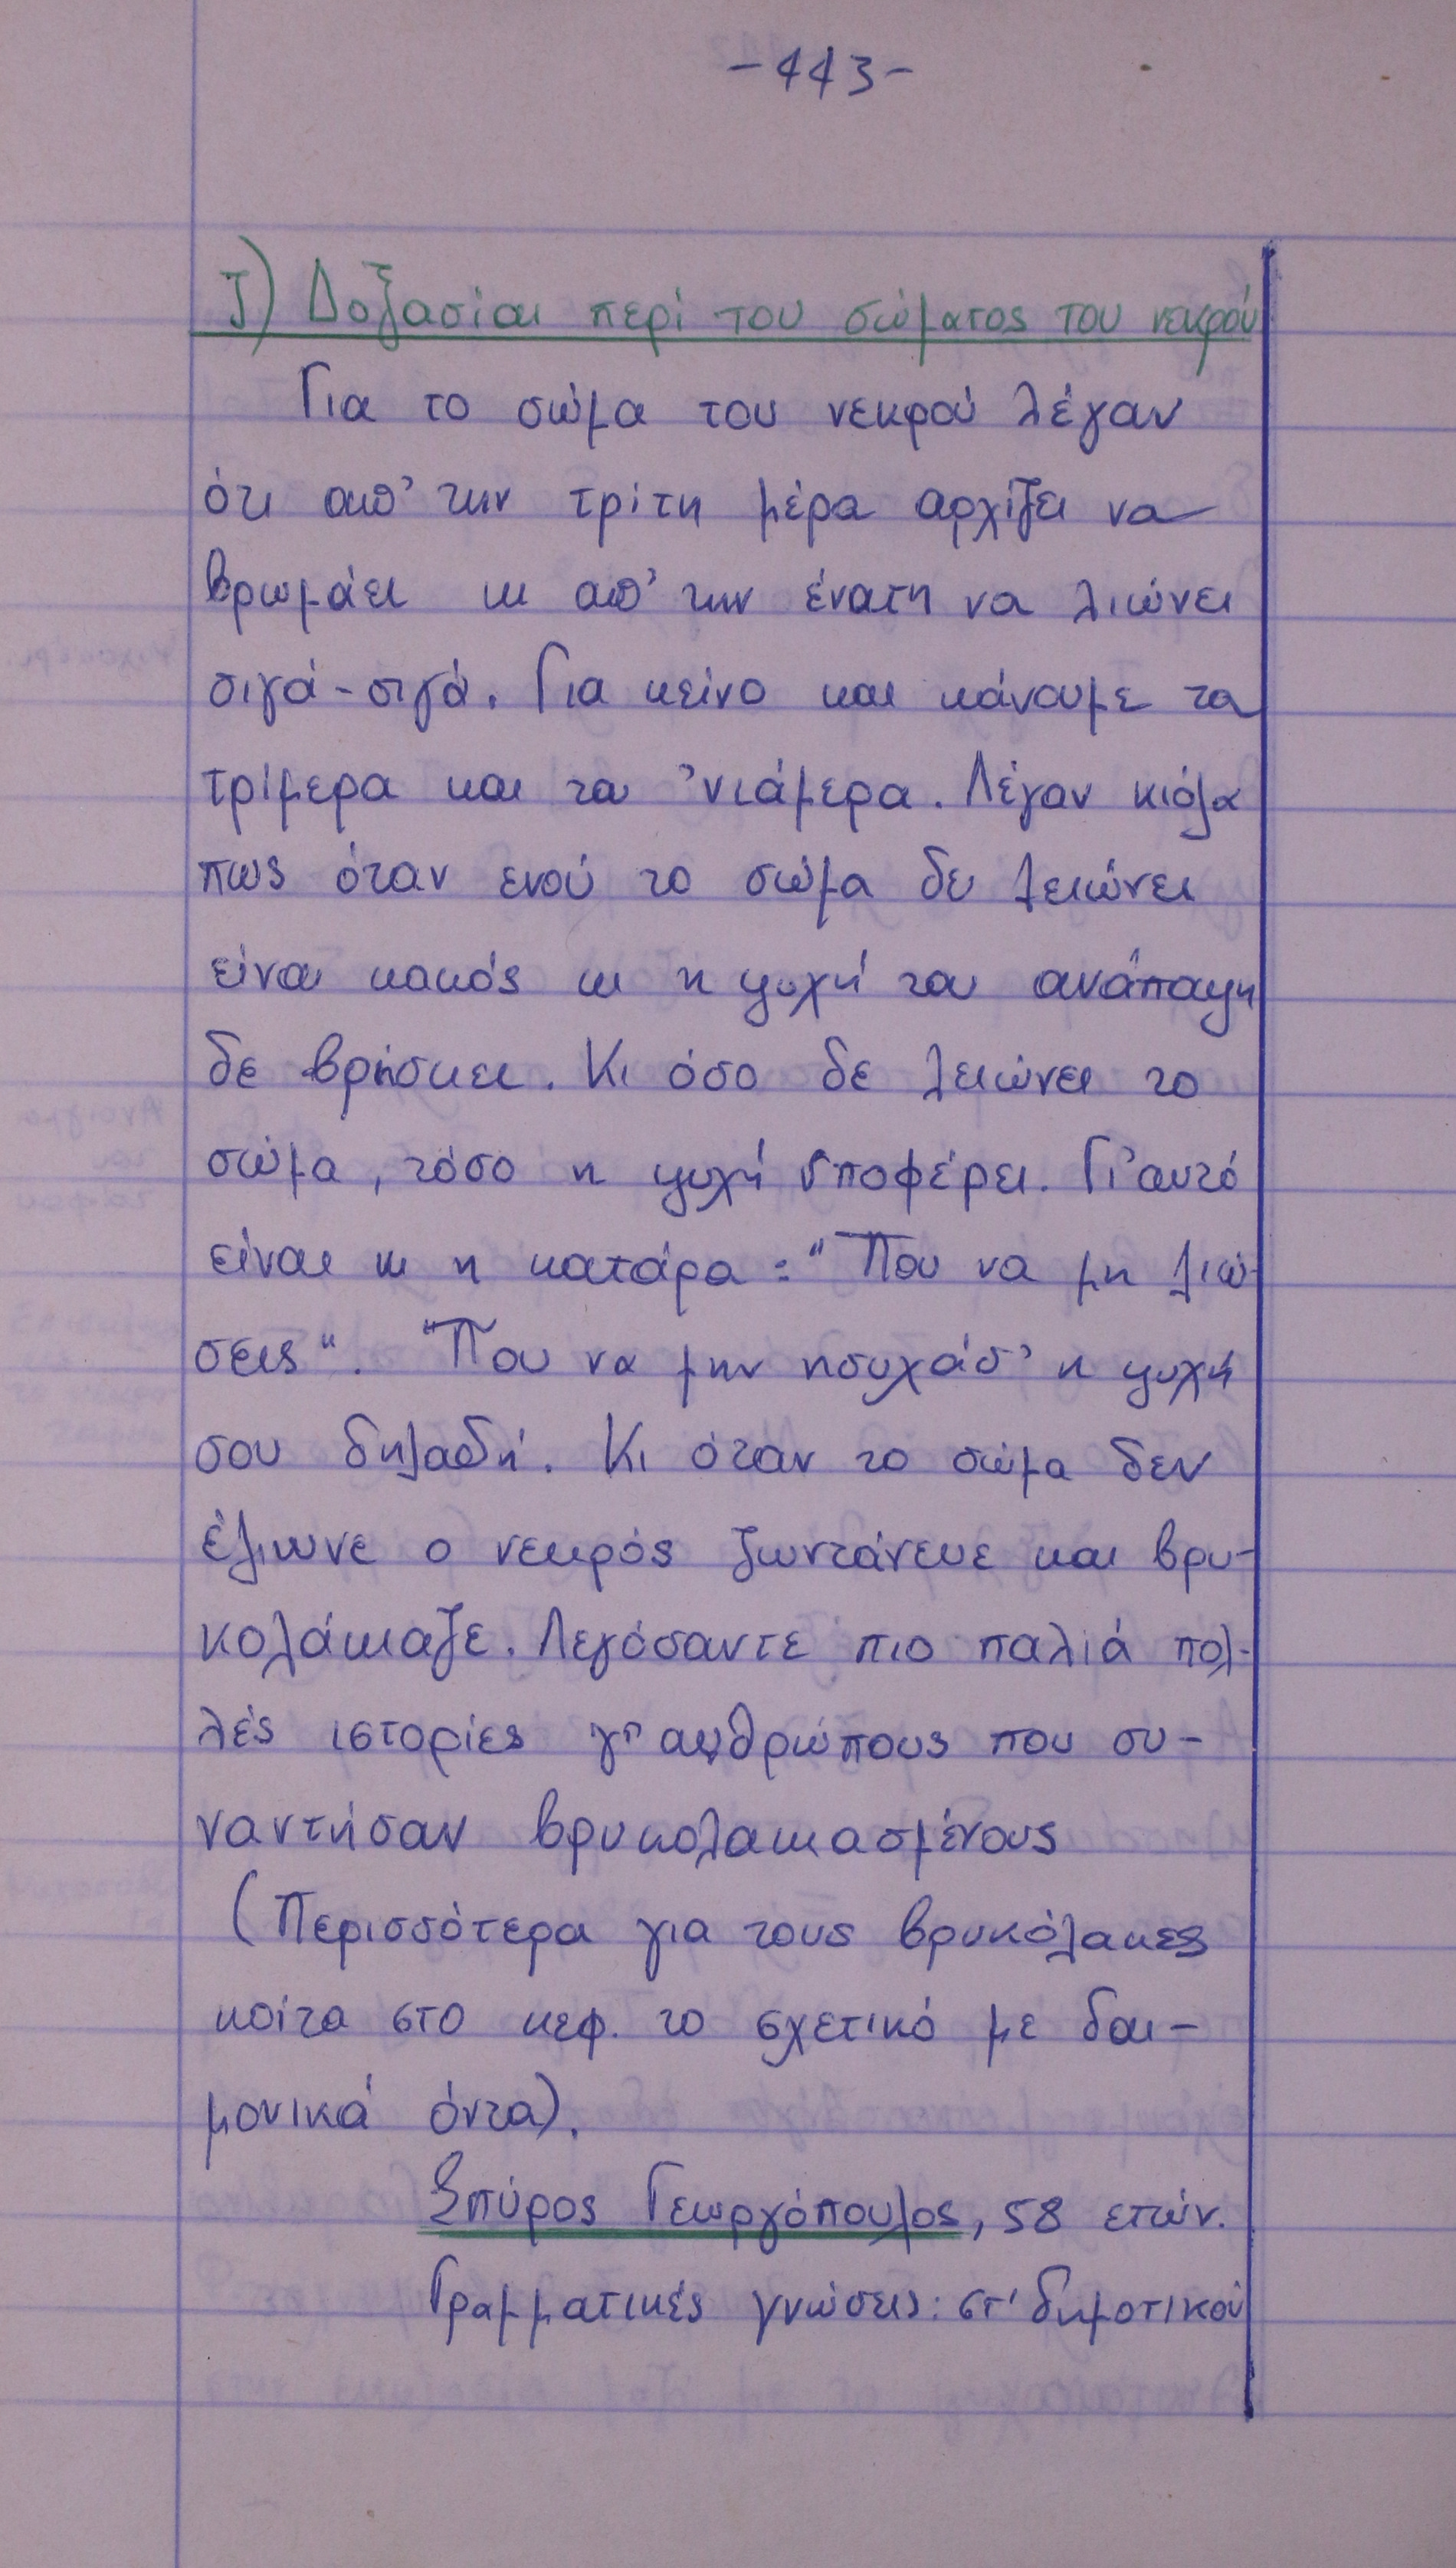 -443-
Ι) Δοξασίαι περί του σώματος του νεκρού
Για το σώμα του νεκρού λέγαν
ότι απ' την τρίτη μέρα αρχίζει να
βρωμάει κι απ' την ένατη να λιώνει
σιγά-σιγά. Για κείνο και κάνουμε τα
τρίμερα και τα 'νιάμερα. Λέγαν κιόλα
πως όταν ενού το σώμα δε λειώνει
είναι κακός κι η ψυχή του ανάπαψη
δε βρήσκει. Κι όσο δε λειώνει το
σώμα, τόσο η ψυχή υποφέρει. Γι'αυτό
είναι κι η κατάρα: "Που να μη λιώ-
σεις". "Που να μην ησυχάσ' η ψυχή
σου δηλαδή. Κι όταν το σώμα δεν
έλιωνε ο νεκρός ζωντάνευε και βρυ-
κολάκιαζε. Λεγόσαντε πιο παλιά πολ-
λές ιστορίες γι' ανθρώπους που συ-
ναντήσαν βρυκολακιασμένους
(Περισσότερα για τους βρυκόλακες
κοίτα στο κεφ. το σχετικό με δαι-
μονικά όντα).
Σπύρος Γεωργόπουλος, 58 ετών.
Γραμματικές γνώσεις: στ' δημοτικού